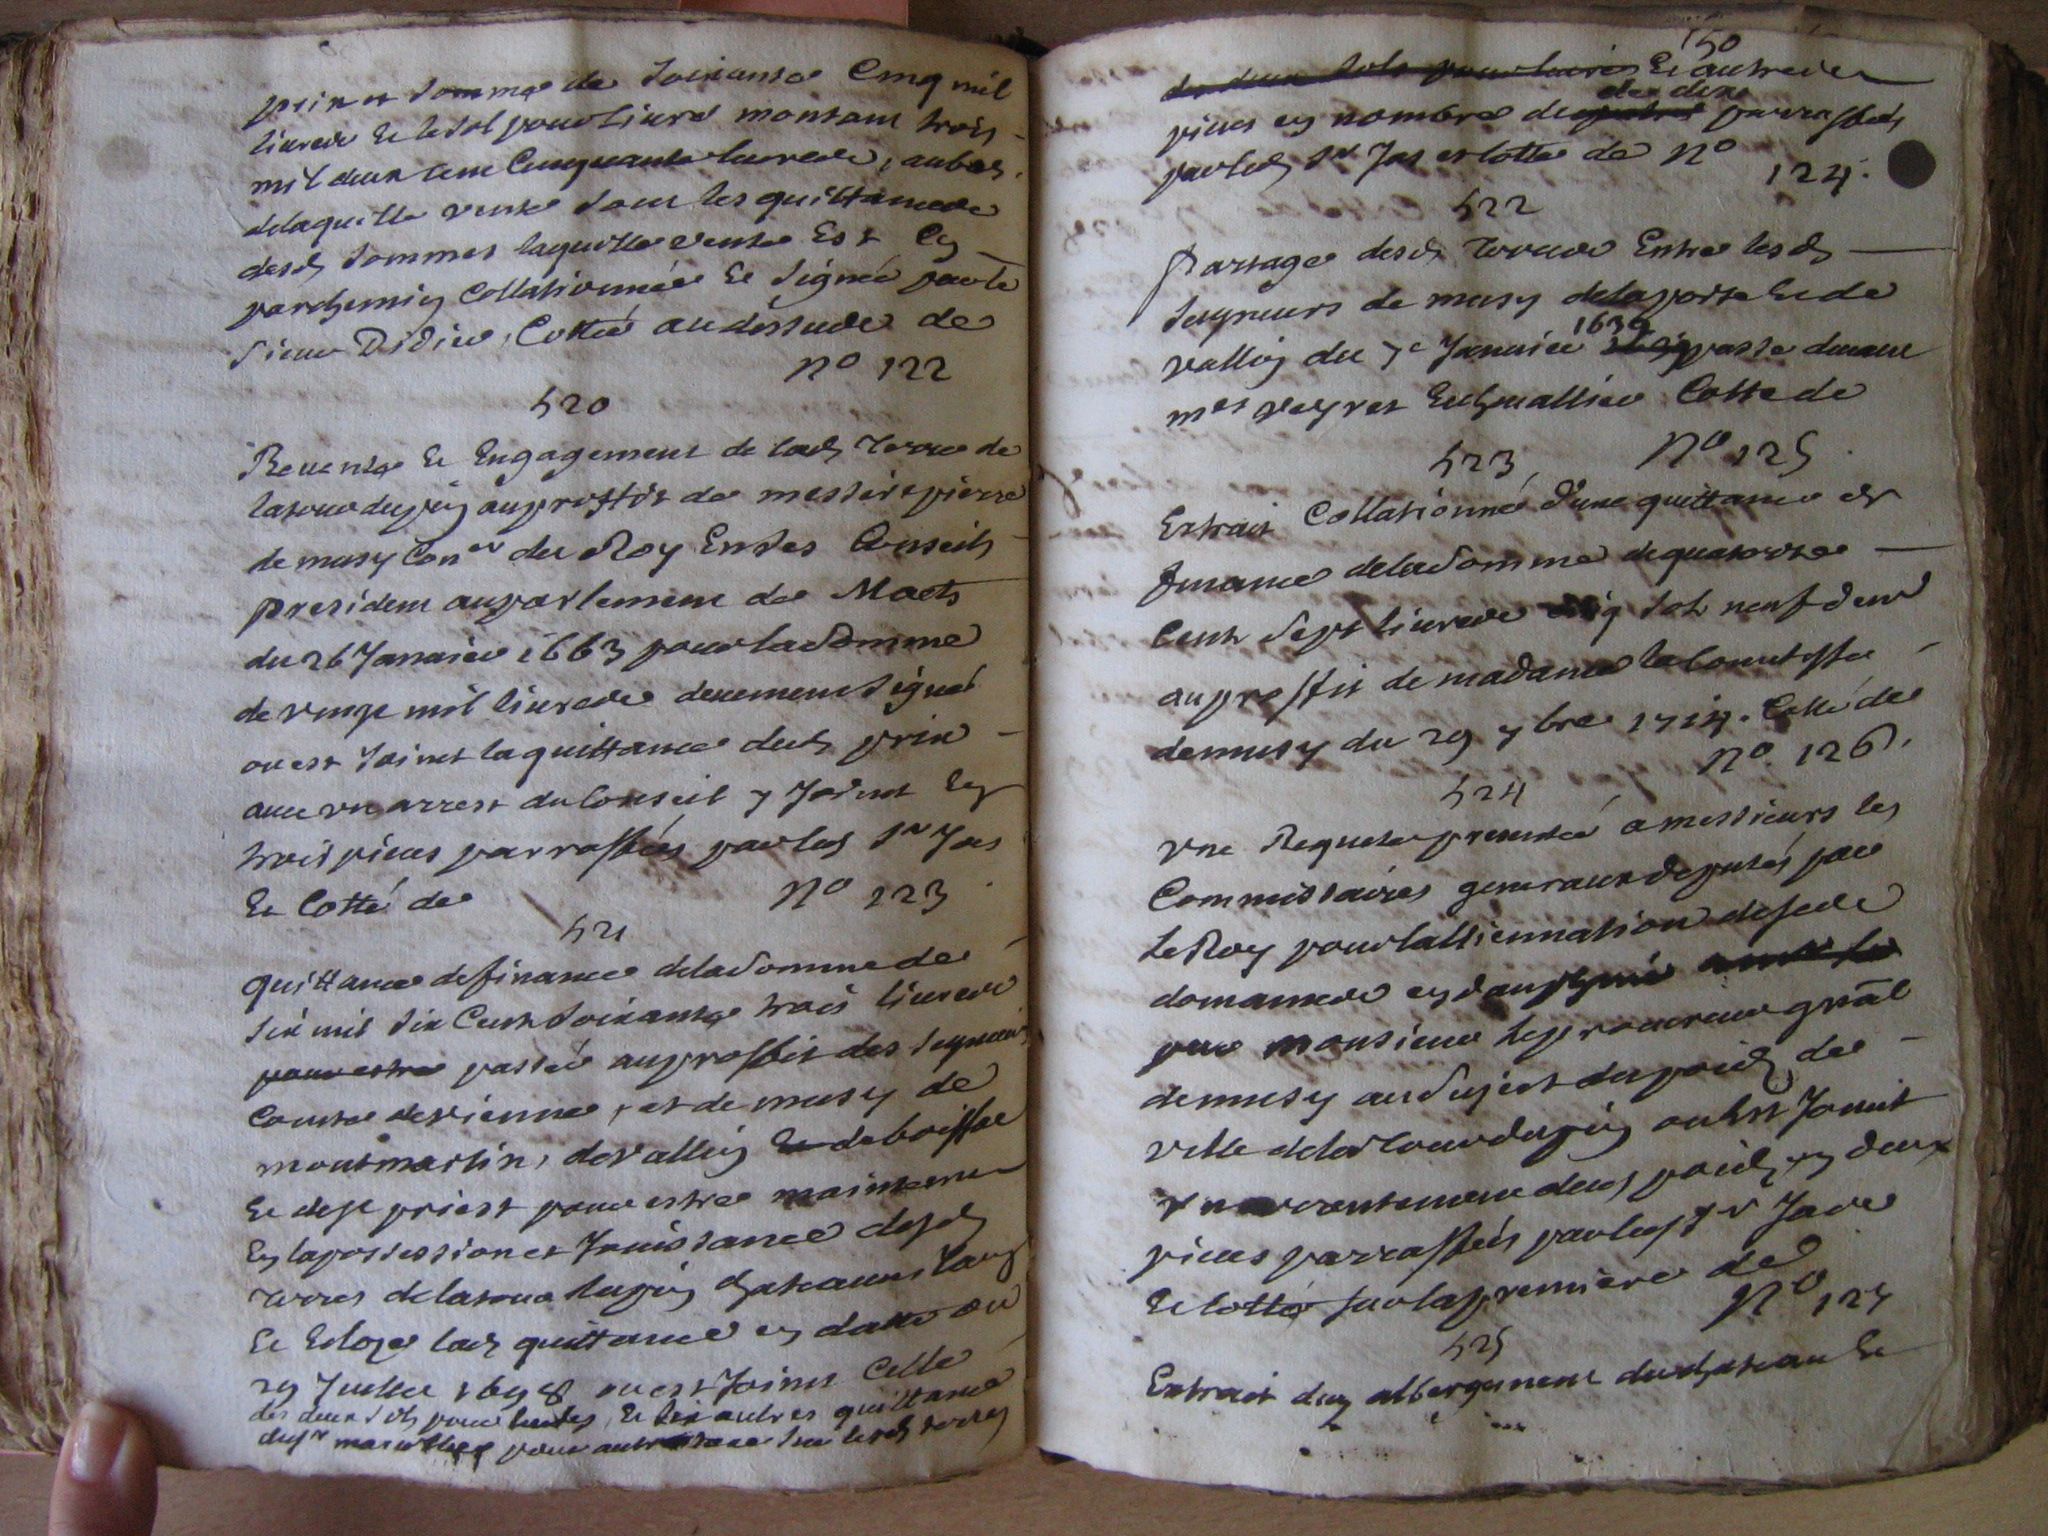 prix et somme de soixante Cinq mil
livres Et le sol pour Livre montant trois
mil deux cent Cinquante livres, aubas
delaquelle vente sont les quittances
desd sommes laquelle vente Est En
parchemin Collationnée Et signée par le
sieur Didier, Cottée audessus de
n° 122
520
Revente Et Engagement de lad Terre de
latour dupin auproffit de messire pierre
de musy Con.er du Roy En ses Conseils
president auparlement de Mets
du 26 Janvier 1663 pour la somme
de vingt mil livres deuement signé
ou est Joinct la quittance dud prix
avec vn arrest du Conseil y Joinct En
trois pieces parraffées par led sr Jas
Et Cotté de n° 123
521
quittance definance dela somme de
six mil six Cent soixante trois livres
pour estre passée auproffit des seigneurs
Comte de vienne, et de musy de
montmartin, de vallin Et de boissac
Et de st priest pour estre maintenu
En la possession et Jouissance desd
terres de latour dupin chateauvilain
Et Et loze lad quittance en datte du
29 Juillet 1698 ou est Joinct Celle
des deux sols pour livres, Et six autres quittances
du sr pour autre sur lesd terres
150
de deux sols pour livres Et autres
de dix
pieces en nombre de quatre parraffées
par led sr Jas et cotté de n° 124.
522
Partage desd Terres Entre lesd
seigneurs de musy delaporte Et de
1639
vallin du 7e Janvier passé devant
mes veyret Et Cotté de
523 N° 125
Extrait Collationné d'une quittance de
finance dela somme de quatorze
Cent sept livres cinq sols neuf den
auproffit de madame la Comtesse
demusy du 29 7bre 1714. Cotté de
n°. 126.
524
vne Requete presentée a messieurs les
Commissaires generaux deputés par
le Roy pour lalliennation de ses
domaines en dauphiné
par monsieur le procureur gnãl
demusy au sujet du poid de
ville dela tour dupin ou Est Joinct
vn dud poid en deux
pieces parraffées par led sr Jas
Et Cotté sur la premiere de
N° 127
525
Extrait dun albergement du chateau Et